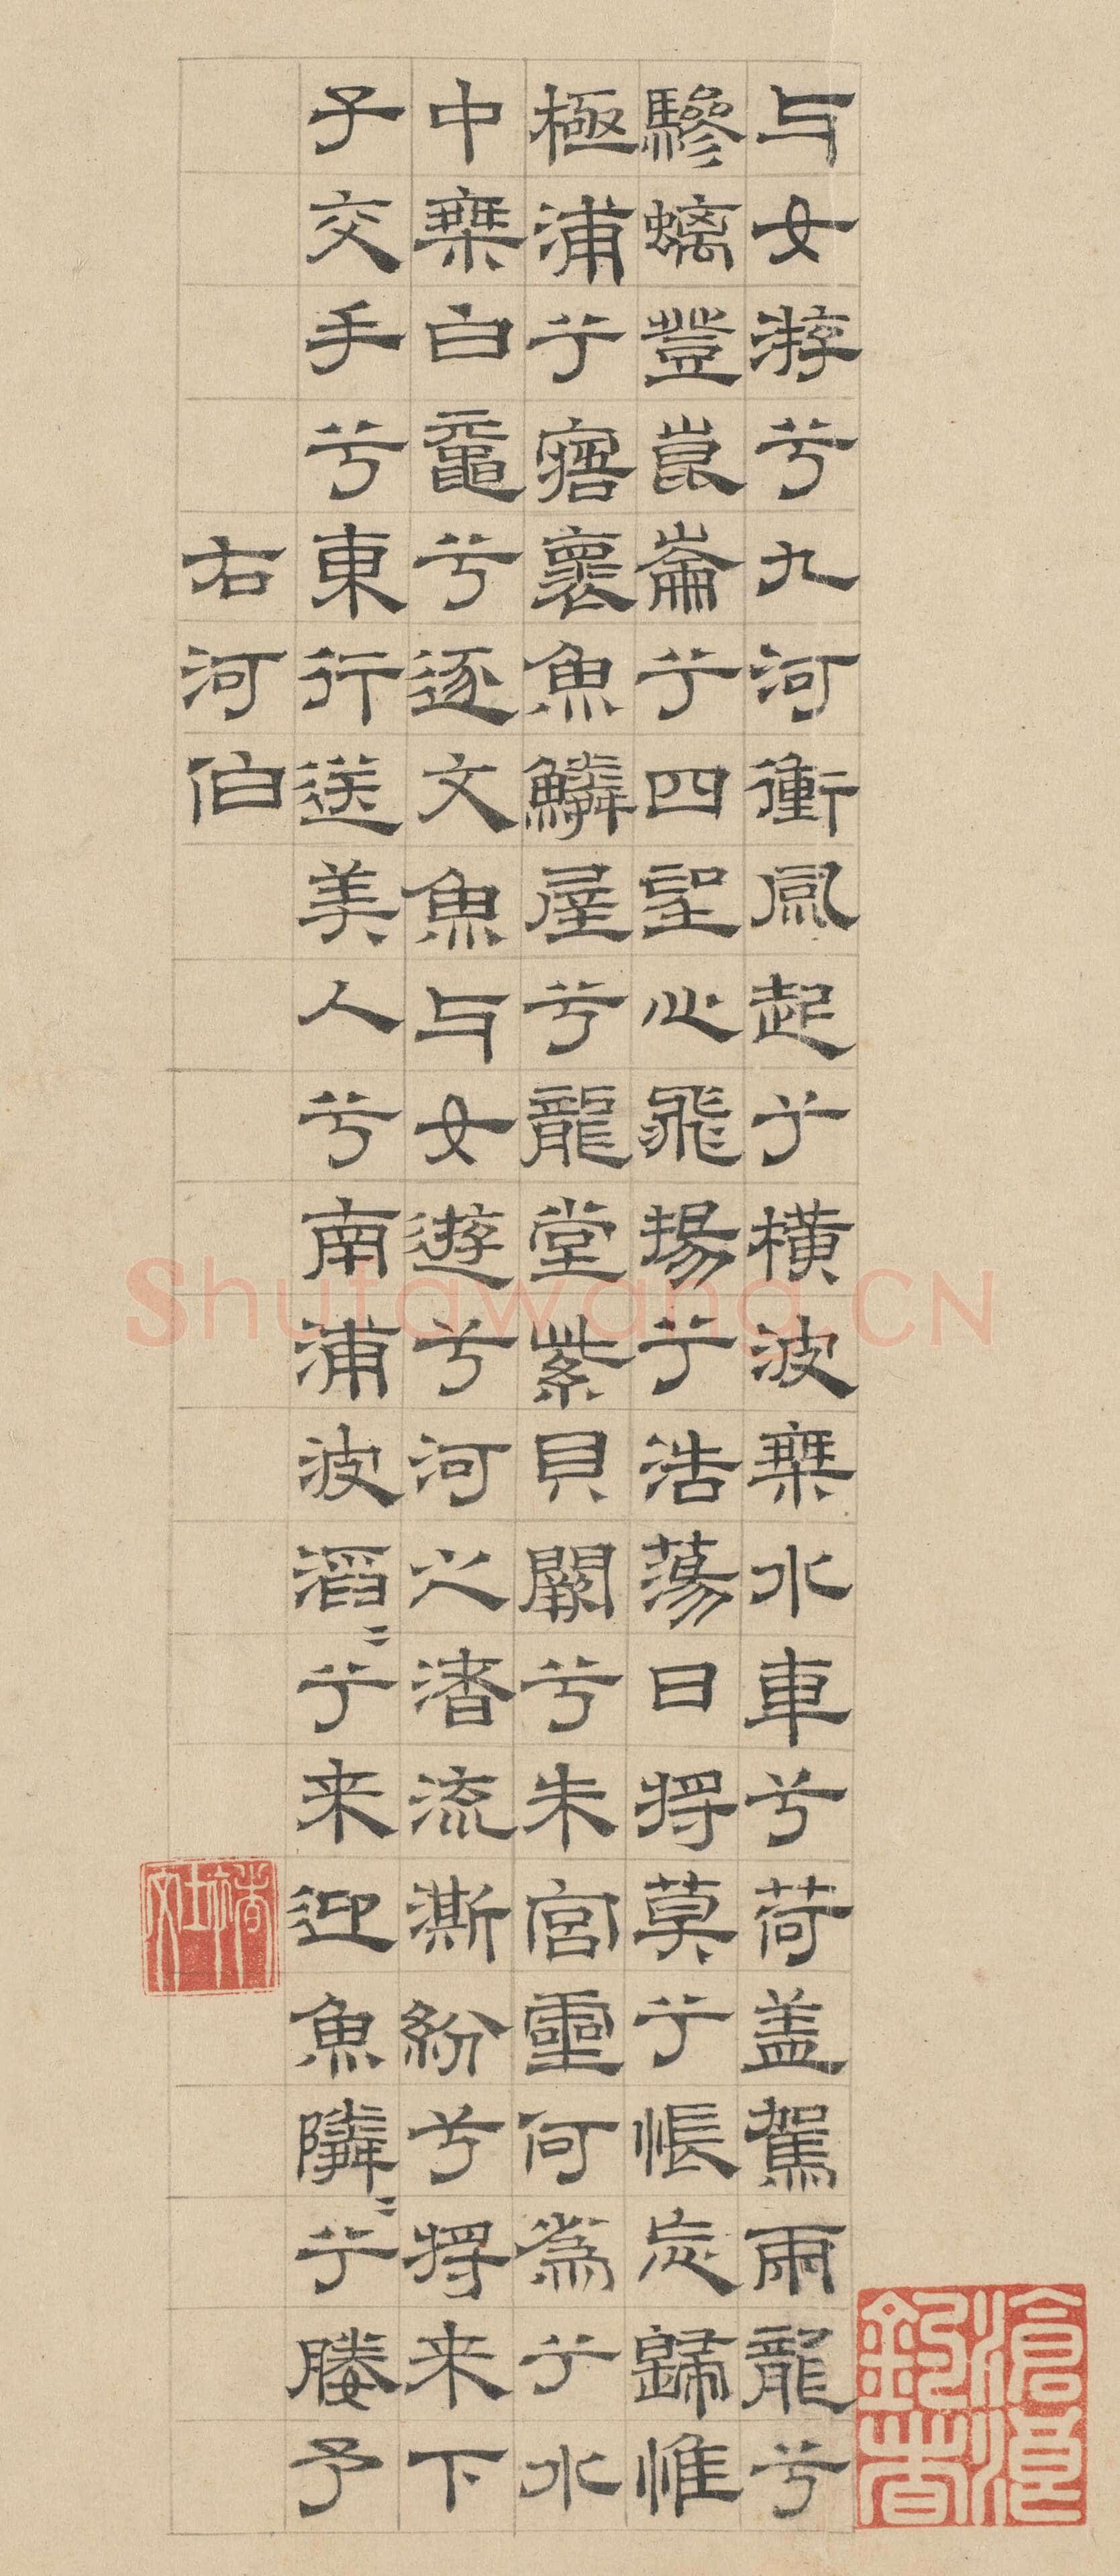 与女游兮九河衝風起兮橫波乗水車兮荷盖駕雨龍兮
驂螭登崑崙兮四望心飛揚兮浩蕩日將莫兮悵忘歸惟
極浦兮寤褱魚鱗屋兮龍堂紫貝闕兮朱宮靈何為兮水
中乗白黿兮逐文魚与女遊兮河之渚流澌紛兮將来下
子交手兮東行送美人兮南浦波滔〻兮来迎魚隣〻兮媵予
右河伯
滄浪釣者
Shufawang.CN